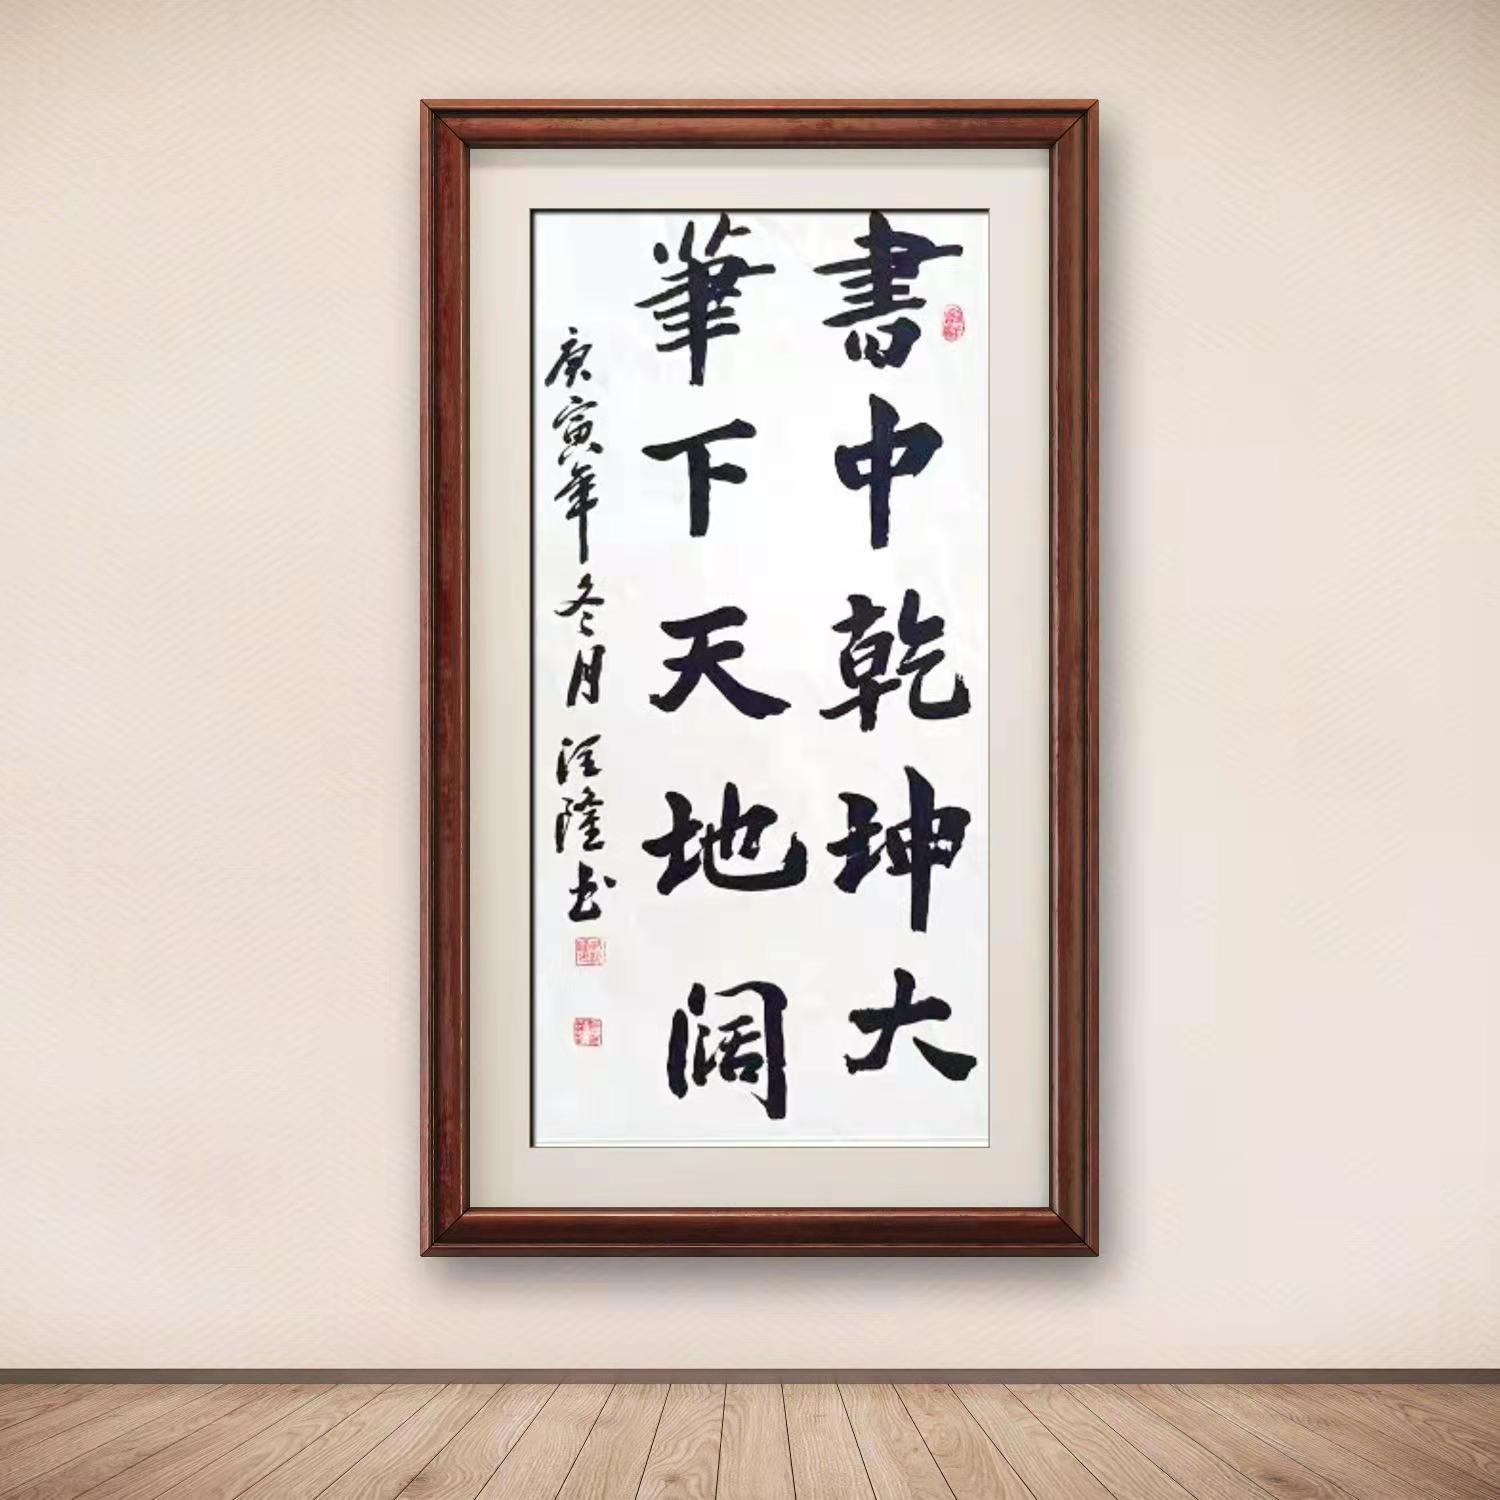 書中乾坤大
筆下天地阔
庚寅年冬月汪隆书